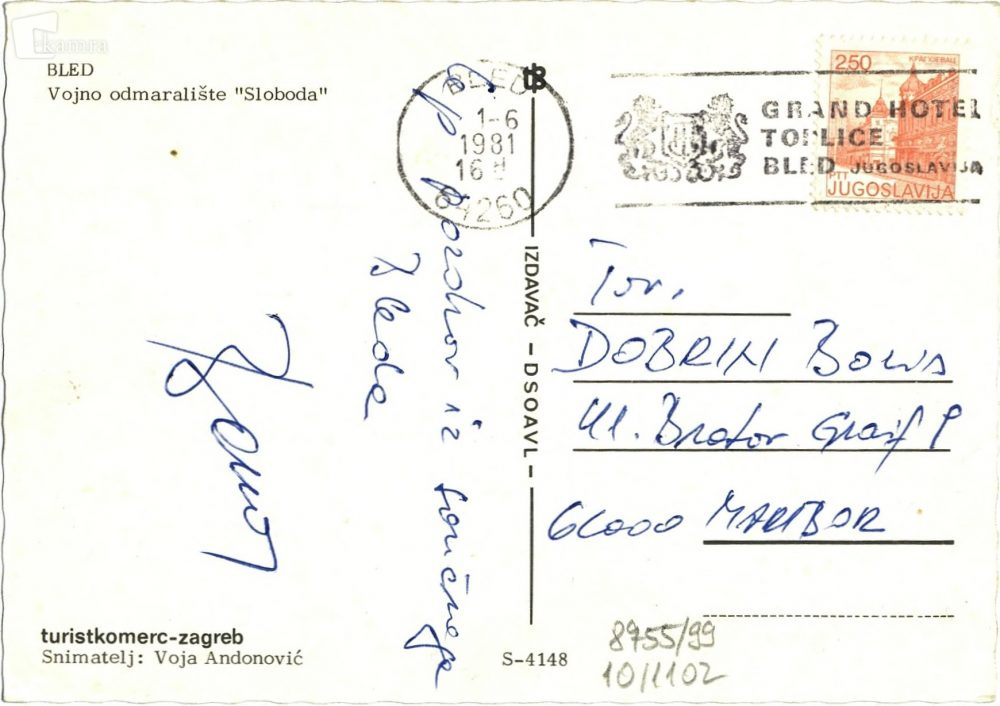 kamra
BLED
Vojno odmaralište "Sloboda"
BLED
1-6
1981
16
64260
GRAND HOTEL
TOPLICE
BLED JUGOSLAVIJA
250
КРАГУЈЕВАЦ
PTT
JUGOSLAVIJA
Lp pozdrav iz sončnega
Bleda
IZDAVAČ – DSOAVL –
Tov.
DOBRIN Boris
Ul. Bratov Greif
62000 MARIBOR
turistkomerc-zagreb
Snimatelj: Voja Andonović
S-4148
8955/99
10/1102